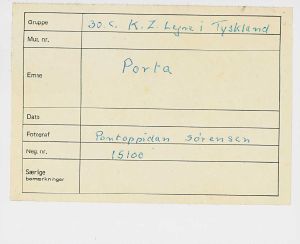 Gruppe 30 c. K.Z Lejre i Tyskland
Mus. nr.
Emne Porta
Dato
Fotograf Pontoppidan Sørensen
Neg. nr. 15100
Særlige bemærkninger